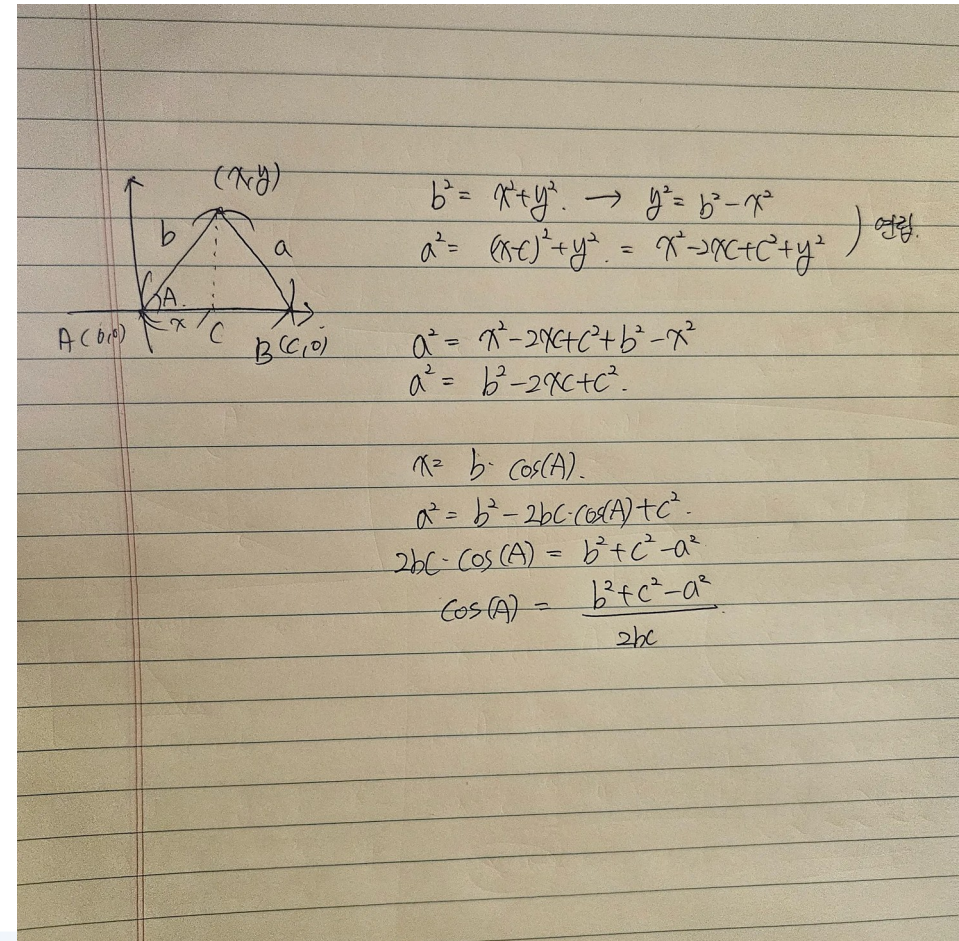 (x,y)
b
a
A.
x
C
A(0,0)
B(C,0)
b² = x²+y². → y² = b²-x²
a² = (x-c)²+y². = x²-2xc+c²+y² ) 연립.
a² = x²-2xc+c²+b²-x²
a² = b²-2xc+c².
x= b· cos(A).
a² = b²-2bc·cos(A)+c².
2bc· cos(A) = b²+c²-a²
cos(A) = b²+c²-a²
2bc